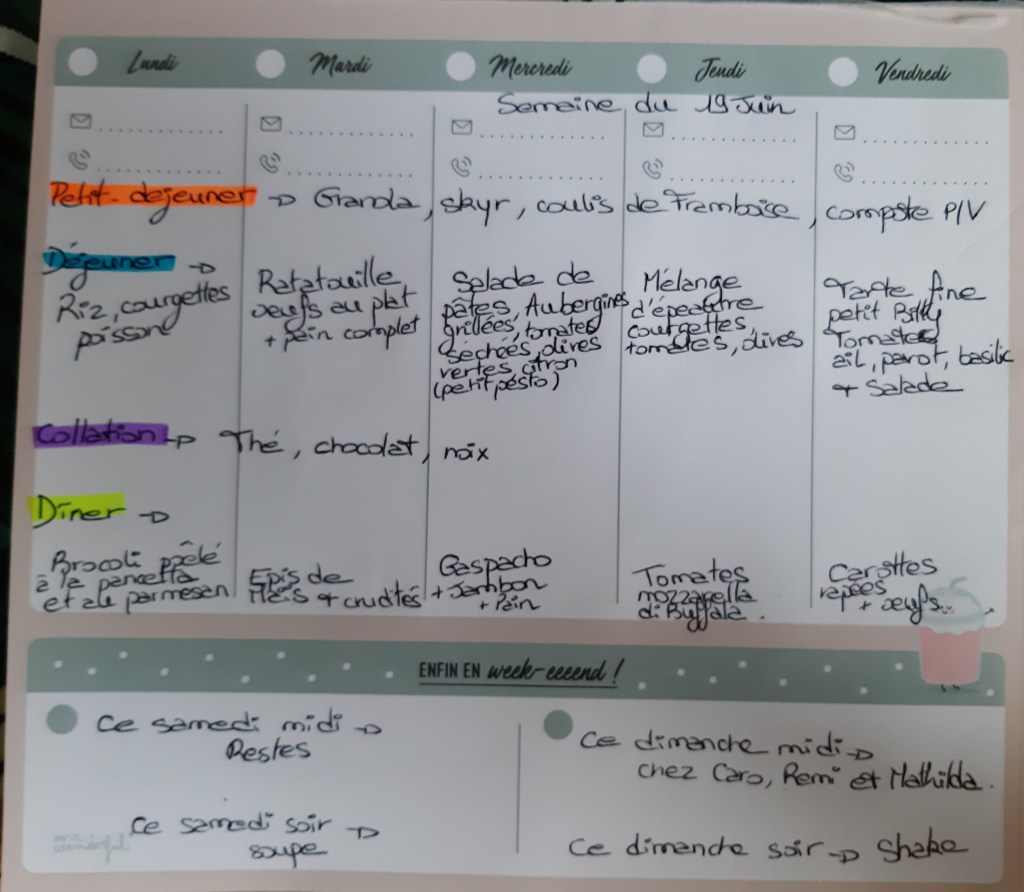 Lundi
Mardi
Mercredi
Jeudi
Vendredi
Semaine du 19 Juin
Petit-dejeuner → Granola, skyr, coulis de Framboise, compote P/V
Déjeuner →
Riz, courgettes
poisson
Ratatouille
oeufs au plat
+ pain complet
Salade de
pâtes, Aubergines
grillées, tomates
séchées, olives
vertes, citron
(petit pesto)
Mélange
d'épeautre
courgettes,
tomates, olives
Tarte fine
petit Billy
Tomates
ail, pavot, basilic
+ Salade
Collation → Thé, chocolat, noix
Dîner →
Brocoli poêlé
à la pancetta
et au parmesan
Epis de
Maïs + crudités
Gaspacho
+ Jambon
+ Pain
Tomates
mozzarella
di Buffala.
Carottes
repées
+ oeufs
ENFIN EN week-eeeend !
Ce samedi midi →
Restes
Ce samedi soir →
soupe
Ce dimanche midi →
chez Caro, Remi et Mathilda.
Ce dimanche soir → Shake
mr.
wonderful